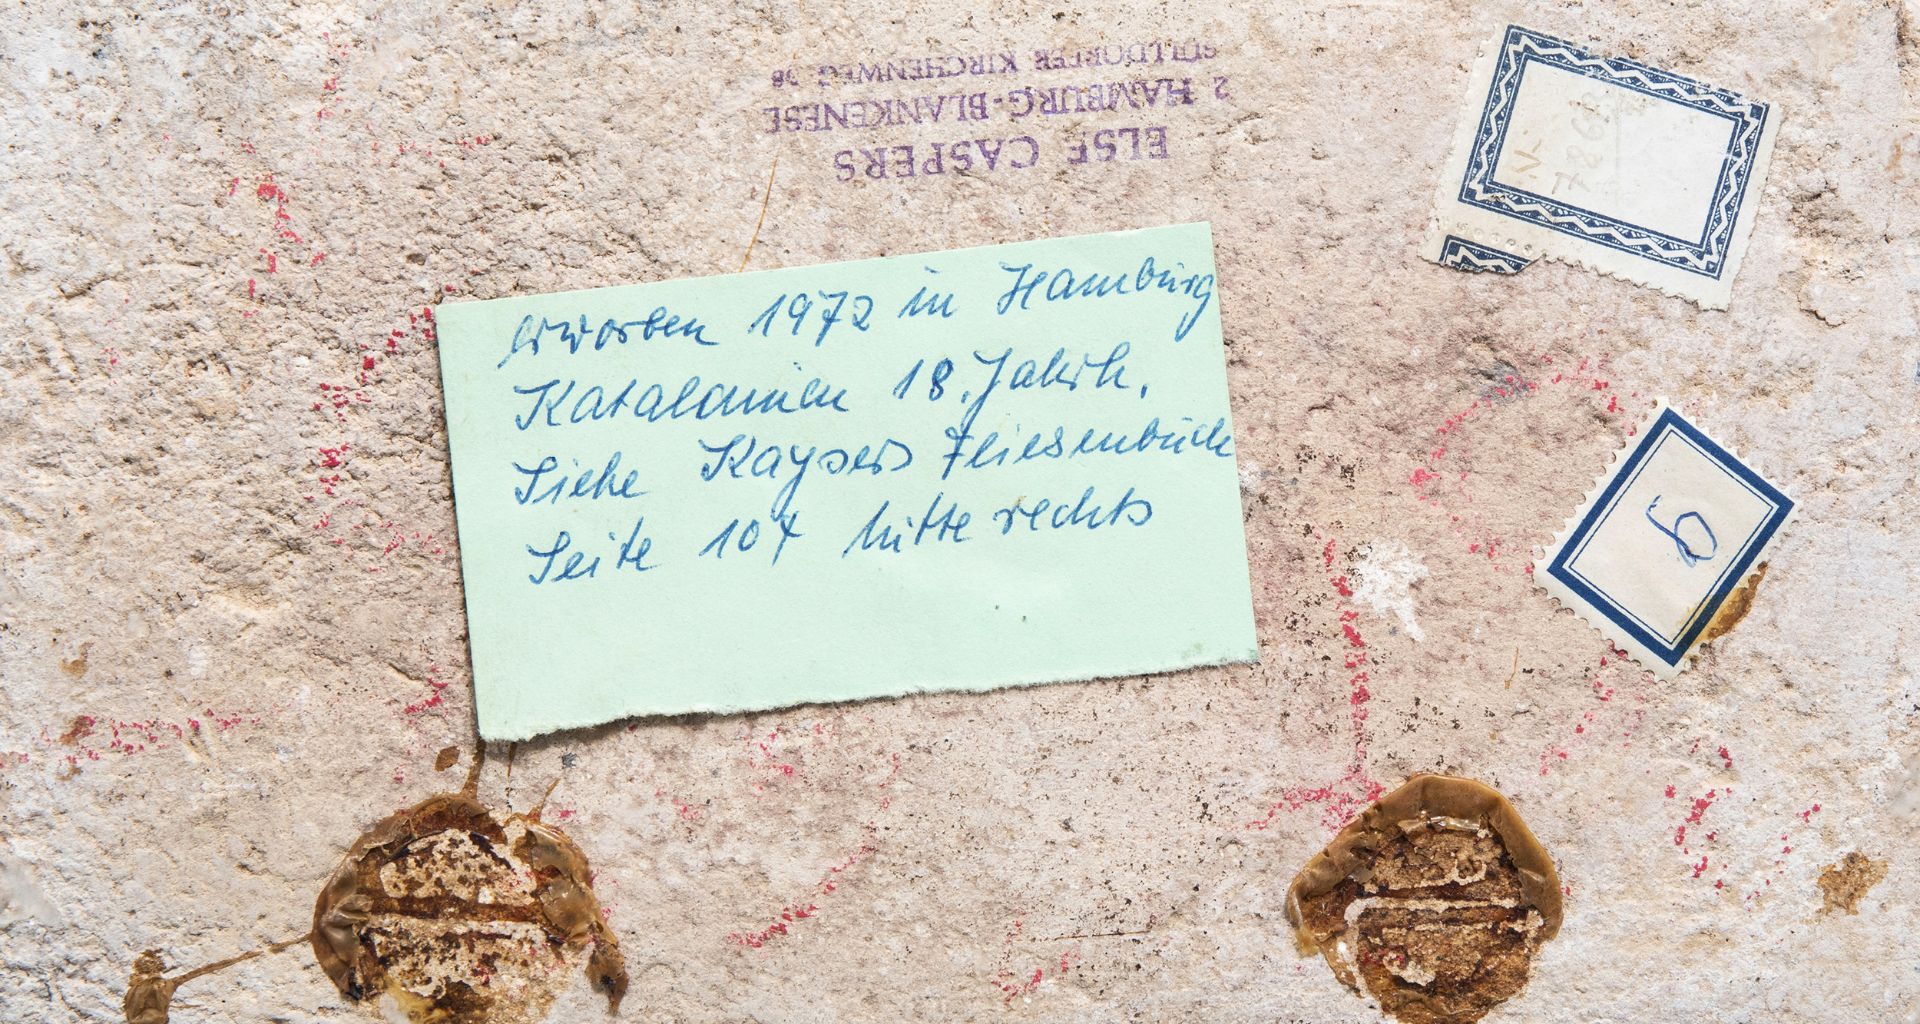 ELSE CASPERS
2 HAMBURG-BLANKENESE
SÜLLDORFER KIRCHENWEG
erworben 1972 in Hamburg
Katalanien 18. Jahrh.
Siehe Kaysers Fliesenbuch
Seite 107 mitte rechts
6